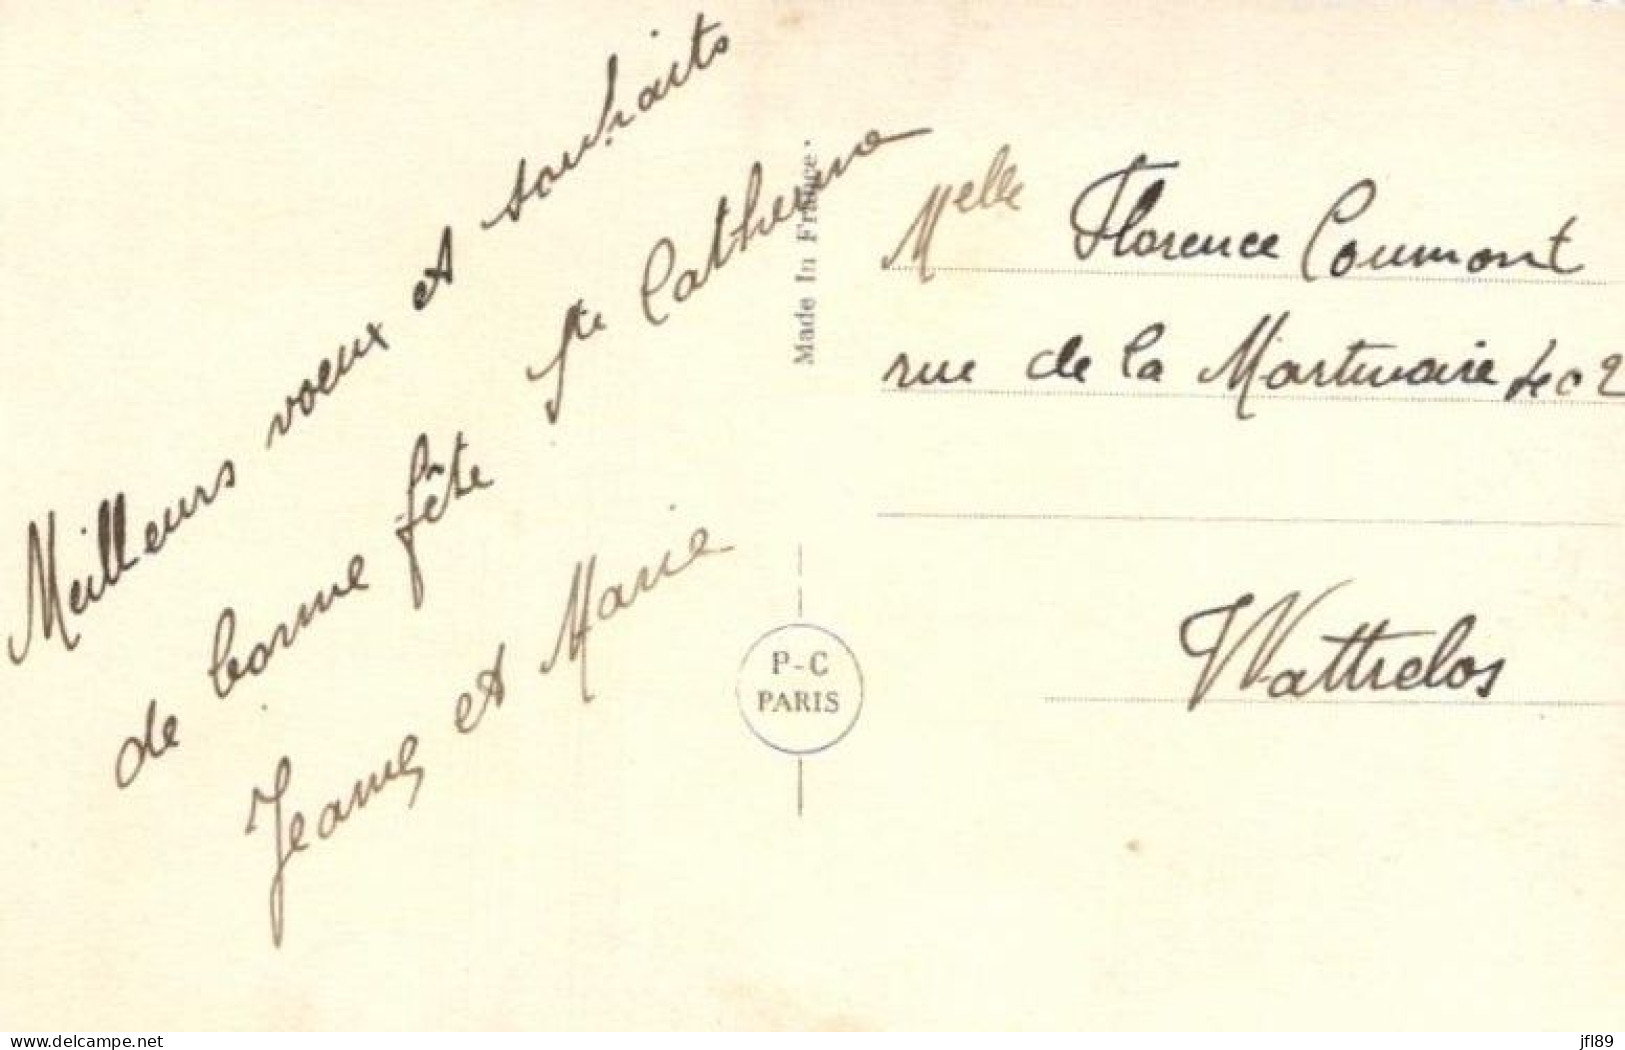 Meilleurs voeux et souhaits
de bonne fête Ste Catherine
Jeanne et Marie
Made In France
P-C
PARIS
Melle Florence Coumont
rue de la Martinoire
Wattrelos
delcampe.net
jfl89